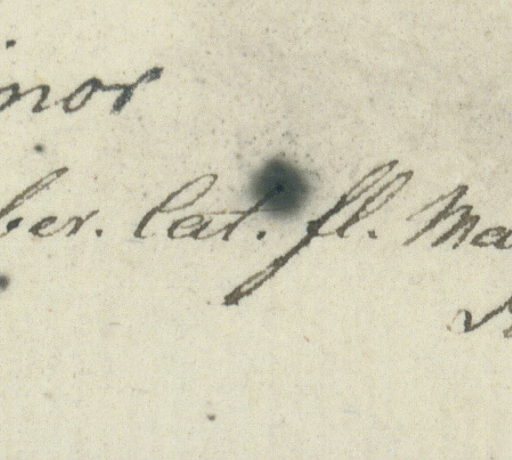 inor
ber. Cat. fl. Ma